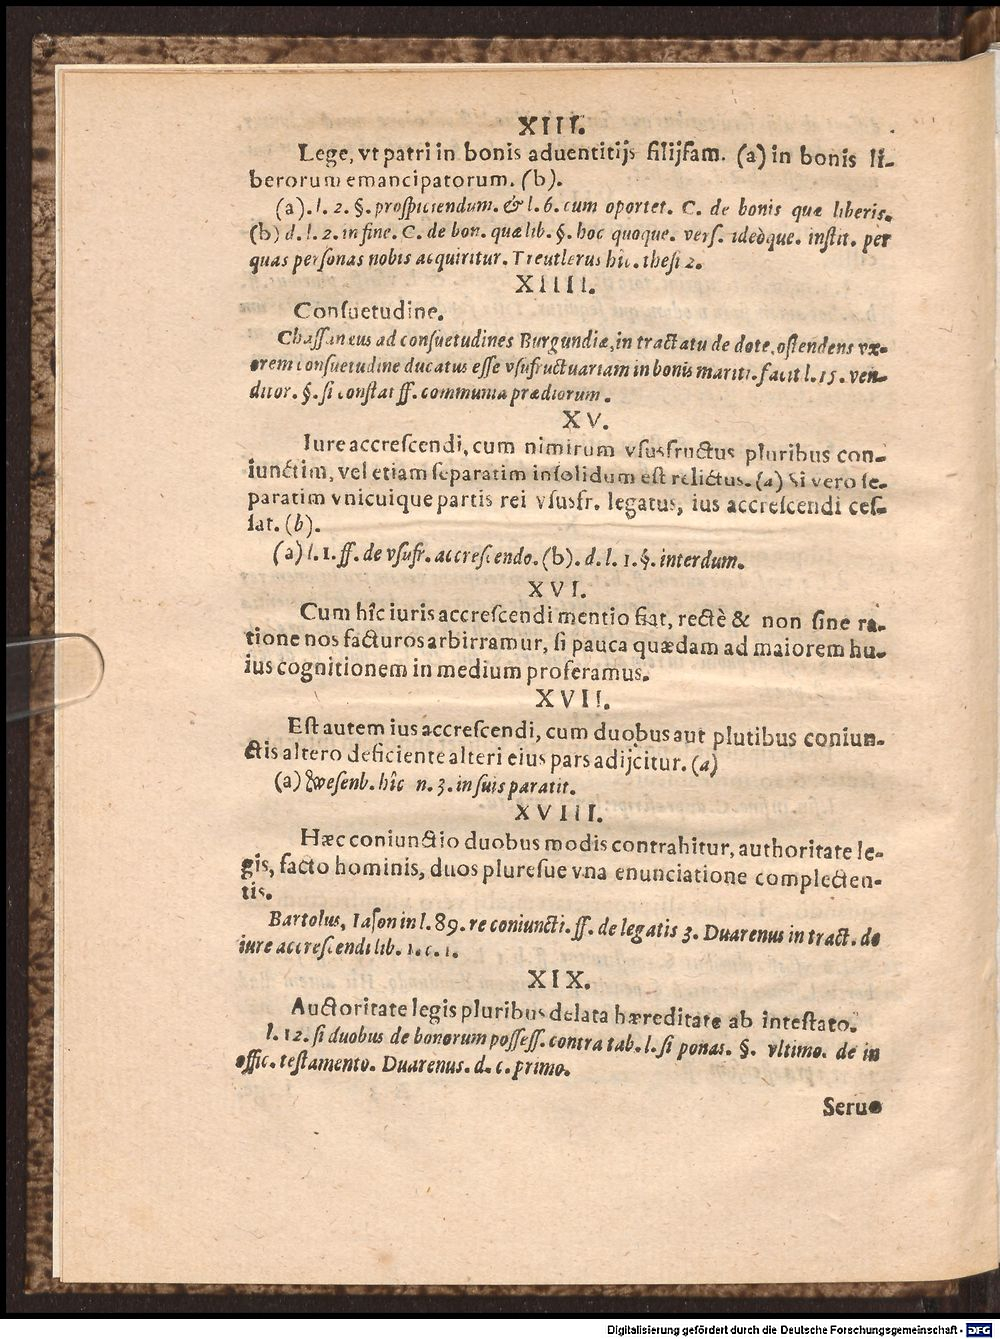 XIII.
Lege, vt patri in bonis aduentitijs filijfam. (a) in bonis li-
berorum emancipatorum. (b).
(a). l. 2. §. proſpiciendum. & l. 6. cum oportet. C. de bonis quæ liberis.
(b) d. l. 2. in fine. C. de bon. quæ lib. §. hoc quoque. verſ. ideòque. inſtit. per
quas perſonas nobis acquiritur. Treutlerus hîc. theſi 2.
XIIII.
Conſuetudine.
Chaſſaneus ad conſuetudines Burgundiæ, in tractatu de dote, oſtendens vx-
orem conſuetudine ducatus eſſe vſufructuariam in bonis mariti. facit l. 15. ven-
ditor. §. ſi conſtat ff. communia prædiorum.
XV.
Iure accreſcendi, cum nimirum vſusfructus pluribus con-
iunctim, vel etiam ſeparatim inſolidum eſt relictus. (a) Si vero ſe-
paratim vnicuique partis rei vſusfr. legatus, ius accreſcendi ceſ-
ſat. (b).
(a) l. 1. ff. de vſufr. accreſcendo. (b). d. l. 1. §. interdum.
XVI.
Cum hîc iuris accreſcendi mentio fiat, rectè & non ſine ra-
tione nos facturos arbirramur, ſi pauca quædam ad maiorem hu-
ius cognitionem in medium proferamus.
XVII.
Eſt autem ius accreſcendi, cum duobus aut plutibus coniun-
ctis altero deficiente alteri eius pars adijcitur. (a)
(a) Weſenb. hîc n. 3. in ſuis paratit.
XVIII.
Hæc coniunctio duobus modis contrahitur, authoritate le-
gis, facto hominis, duos plureſue vna enunciatione complecten-
tis.
Bartolus, Iaſon in l. 89. re coniuncti. ff. de legatis 3. Duarenus in tract. de
iure accreſcendi lib. 1. c. 1.
XIX.
Auctoritate legis pluribus delata hæreditate ab inteſtato.
l. 12. ſi duobus de bonorum poſſeſſ. contra tab. l. ſi ponas. §. vltimo. de in
offic. teſtamento. Duarenus. d. c. primo.
Seruo
Digitalisierung gefördert durch die Deutsche Forschungsgemeinschaft - DFG